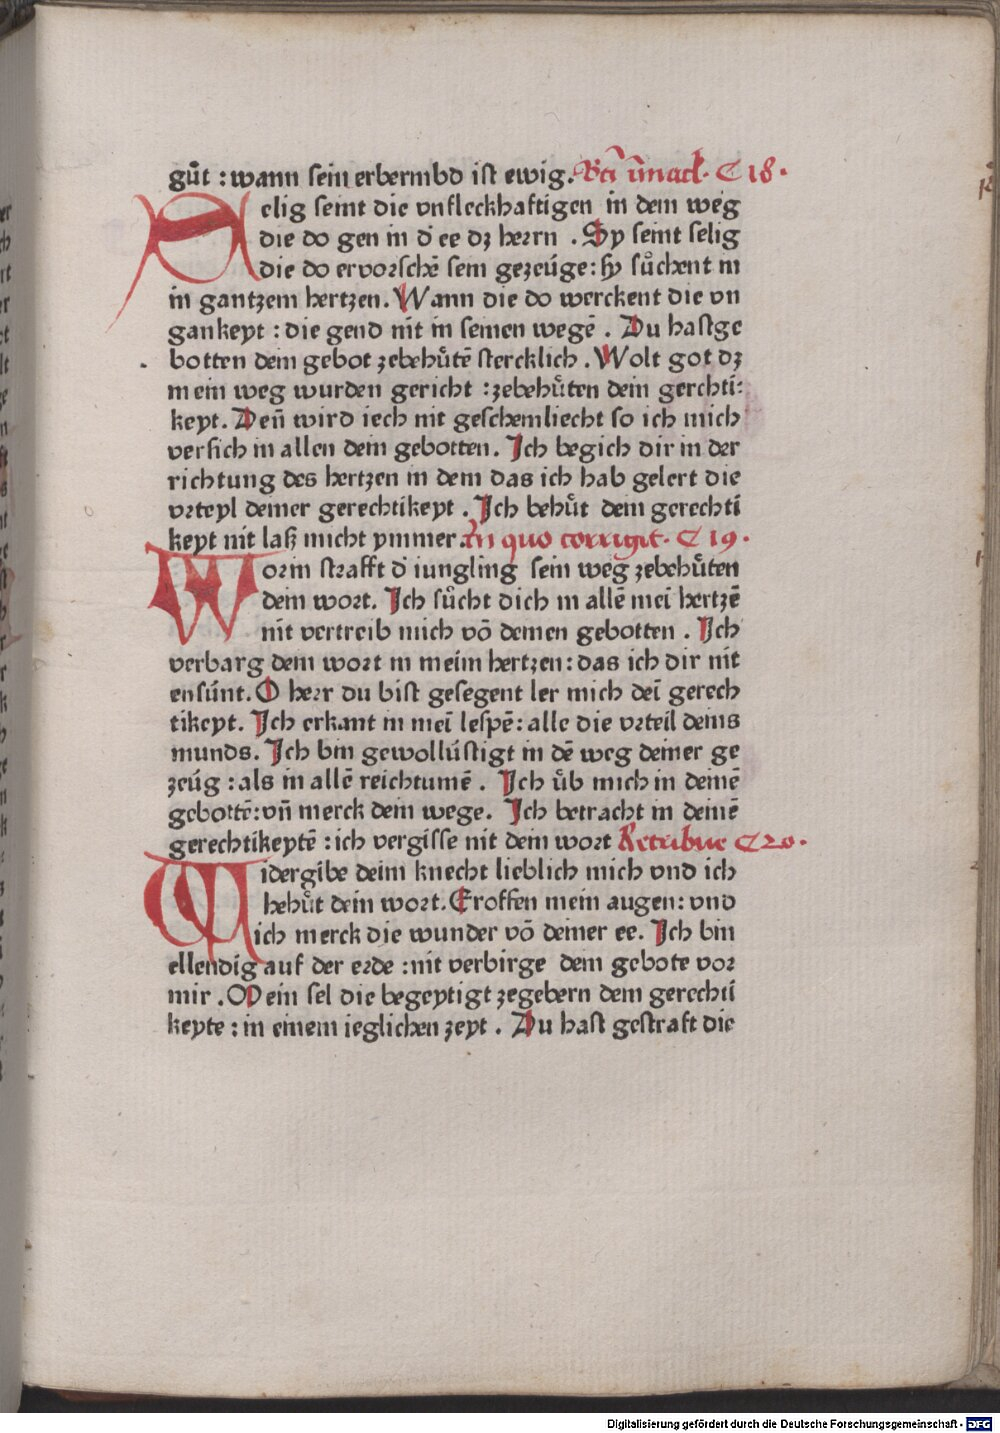 guͦt : wann sein erbermbd ist ewig. Bti īmacl. C 18.
Selig seint die vnfleckhaftigen in dem weg
die do gen in d' ee dz herrn . Sy seint selig
die do ervorschē sein gezeúge: sy suͦchent in
in gantzem hertzen. Wann die do werckent die vn
gankeyt : die gend nit in seinen wegē . Du hast ge
botten dein gebot zebehuͤtē stercklich . Wolt got dz
mein weg wurden gericht : zebehuͤten dein gerchti:
keyt. Deñ wird iech nit geschemliecht so ich mich
versich in allen dein gebotten. Ich begich dir in der
richtung des hertzen in dem das ich hab gelert die
vrteyl deiner gerechtikeyt . Ich behuͤt dein gerechti
keyt nit laß micht ymmer. In quo corrigit. C 19.
Worin strafft d' iungling sein weg zebehuͤten
dein wort. Ich suͦcht dich in allē mei hertzē
nit vertreib mich vō deinen gebotten . Ich
verbarg dein wort in meim hertzen: das ich dir nit
ensúnt. O herr du bist gesegent ler mich deī gerech
tikeyt. Ich erkant in meī lespē: alle die vrteil deins
munds. Ich bin gewollústigt in dē weg deiner ge
zeúg : als in allē reichtumē . Ich uͤb mich in deinē
gebottē: vñ merck dein wege. Ich betracht in deinē
gerechtikeytē : ich vergisse nit dein wort Retribue C 20.
Widergibe deim knecht lieblich mich vnd ich
behuͤt dein wort. Eroffen mein augen: vnd
ich merck die wunder vō deiner ee. Ich bin
ellendig auf der erde : nit verbirge dein gebote vor
mir . Mein sel die begeytigt zegebern dein gerechti
keyte : in einem ieglichen zeyt . Du hast gestraft die
Digitalisierung gefördert durch die Deutsche Forschungsgemeinschaft - DFG